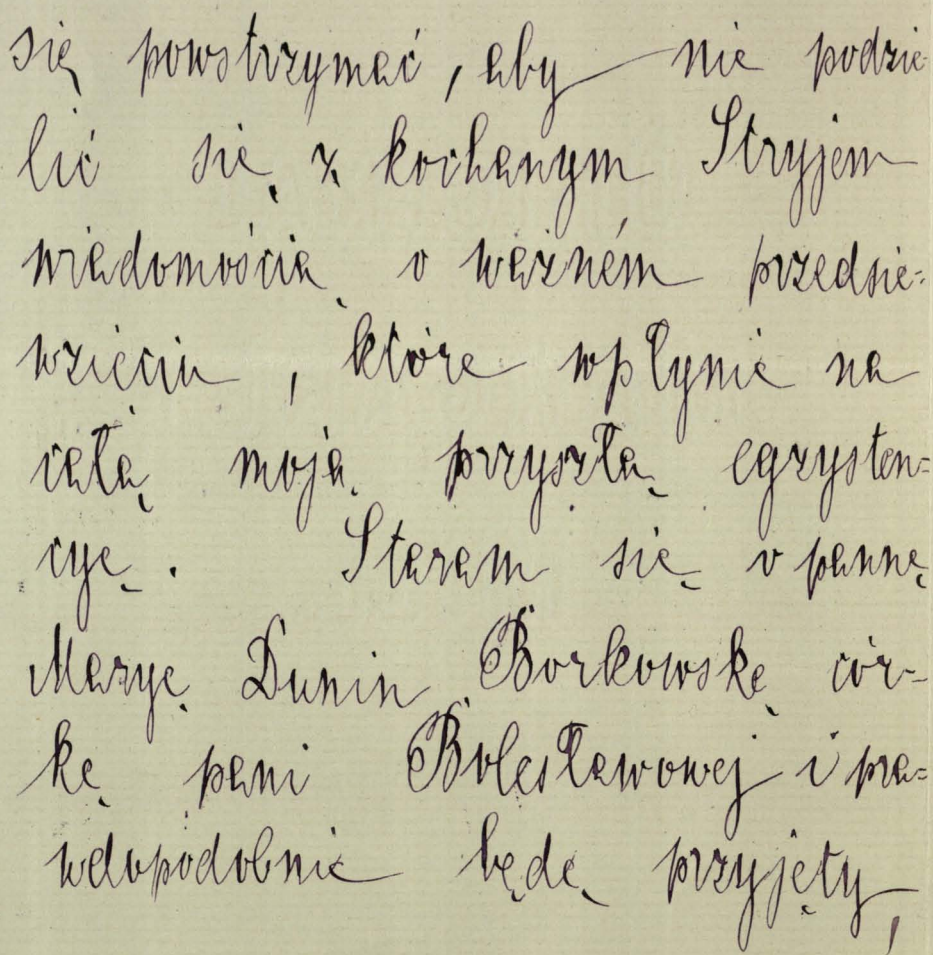 się powstrzymać, aby nie podzie-
lić się z kochanym Stryjem
wiadomością o ważném przedsię=
wzięciu, które wpłynie na
całą moją przyszłą egzysten=
cyę. Staram się o pannę
Maryę Dunin Borkowską cór-
kę pani Bolesławowej i pra=
wdopodobnie będę przyjęty,